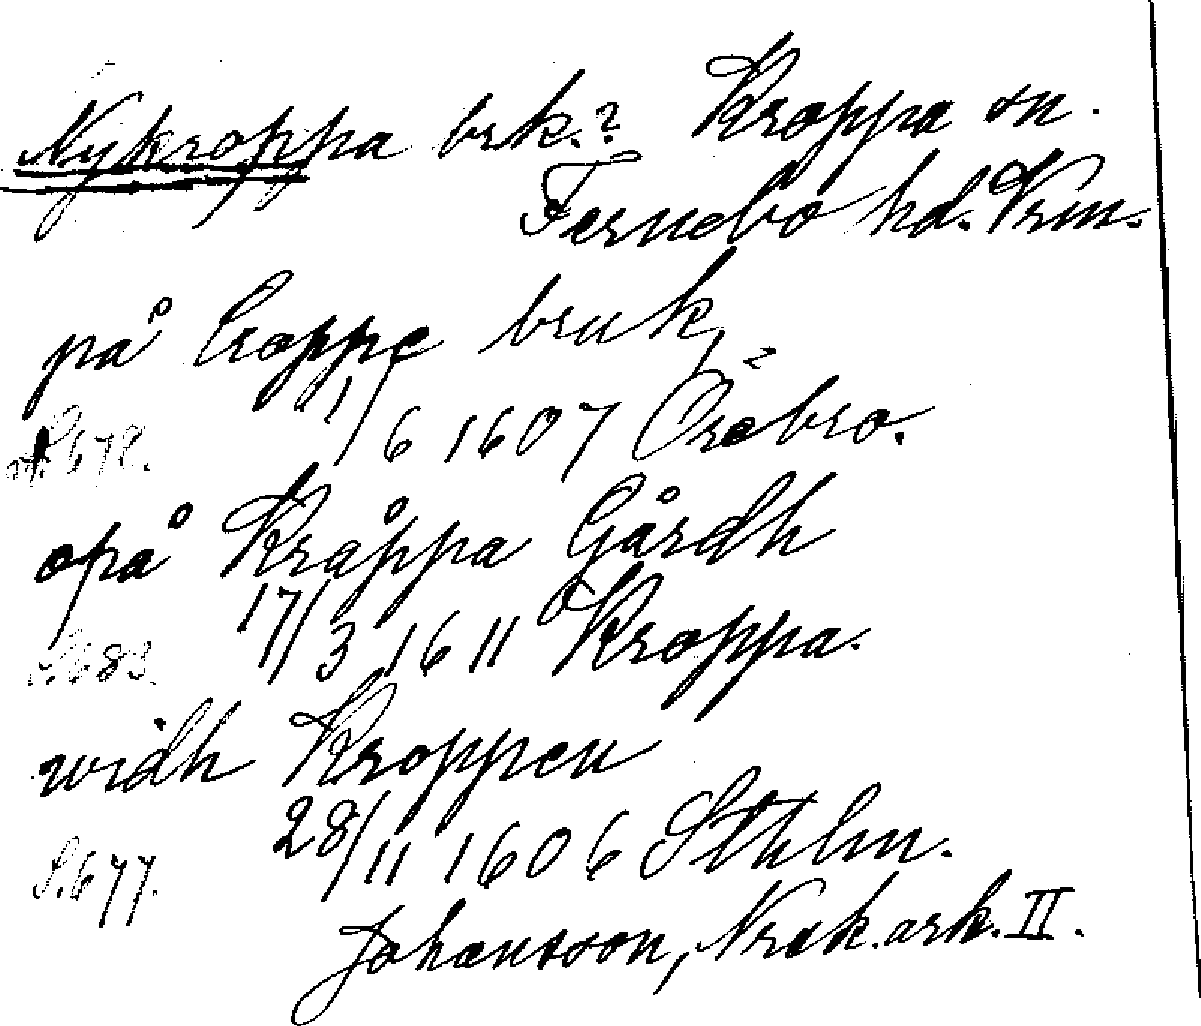 Nykroppa brk.? Kroppa sn.
Fernebo hd. Vrm.
på Croppe bruk,
S. 678. 1/6 1607 Örebro.
opå Kråppa Gårdh
S. 683. 17/3 1611 Kroppa.
widh Kroppen
S. 677. 28/11 1606 Sthlm.
Johansson, Nrek. ark. II.